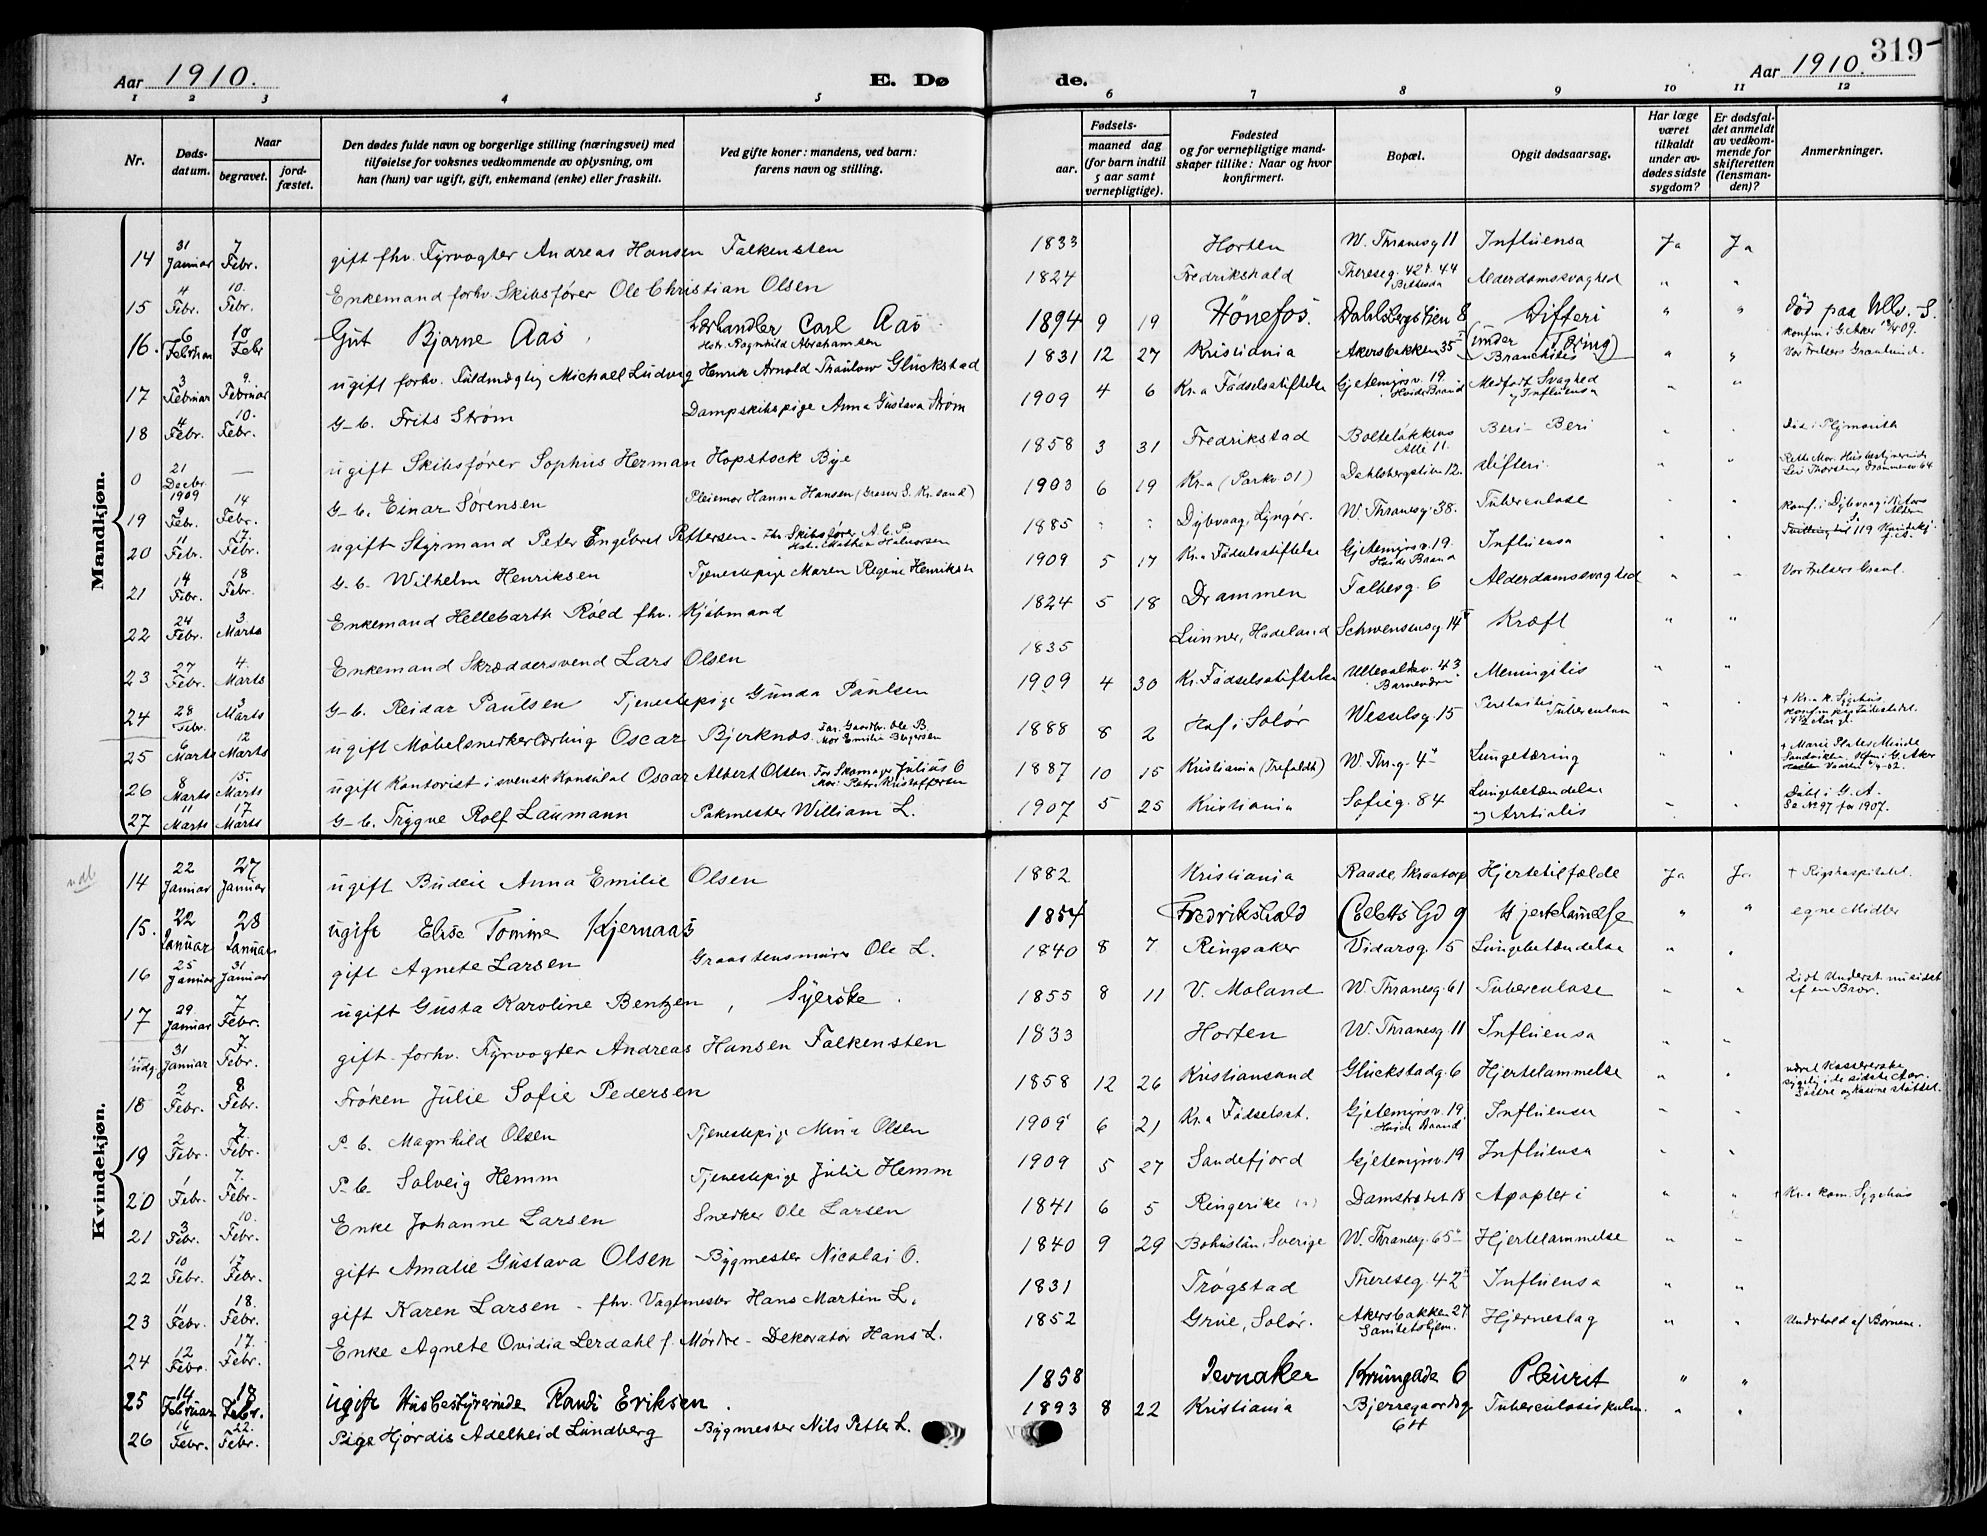 Aar 1910. E. Dø de. Aar 1910. 319
1 2 3 4 5 6 7 8 9 10 11 12
Nr.
Døds-datum.
Naar
begravet.
jord-fæstet.
Den dødes fulde navn og borgerlige stilling (næringsvei) med
tilføielse for voksnes vedkommende av oplysning, om
han (hun) var ugift, gift, enkemand (enke) eller fraskilt.
Ved gifte koner: mandens, ved barn:
farens navn og stilling.
Fødsels-
aar.
maaned dag
(for barn indtil
5 aar samt
vernepligtige).
Fødested
og for vernepligtige mand-
skaper tillike: Naar og hvor
konfirmert.
Bopæl.
Opgit dødsaarsag.
Har læge
været
tilkaldt
under av-
dødes sidste
sygdom?
Er dødsfal-
det anmeldt
av vedkom-
mende for
skifteretten
(lensman-
den)?
Anmerkninger.
Mandkjøn.
14 31 Januar 7 Febr. gift fhv. Fyrvogter Andreas Hansen Falkensten 1833 Horten W. Thranesg 11 Influensa Ja Ja
15 4 Febr. 10. Febr. Enkemand forhv. Skibsfører Ole Christian Olsen 1824 Fredrikshald Thereseg. 42 44 Bethesda Alderdomssvaghed " "
16. 6 Februar 10 Febr Gut Bjarne Aas, Carl Aas Mor. Ragnhild Abrahamsen 1894 9 19 Hønefos. Dahlsbergstien 8 Difteri " " Død paa Ullv. S. konf. i G. Aker 09.
17 3 Februar 9. Februar ugift forhv. Fuldmægtig Michael Ludvig Henrik Arnold Thaulow Glückstad 1831 12 27 Kristiania Akersbakken 35 Bronchitis " " Vor Frelsers Gravlund.
18 4 Febr. 10. Febr. G-b. Frits Strøm Dampskibspige Anna Gustava Strøm 1909 4 6 Kr.a Fødselsstiftelse Gjetemyrsv. 19. Medfødt Svaghed og Influensa " "
0 21 Decbr. 1909 — ugift Skibsfører Sophus Herman Hopstock Bye 1858 3 31 Fredrikstad Bolteløkkens Allé 11. Beri-Beri " " Død i Plymouth
19 9 Febr. 14 Febr. G-b. Einar Sørensen Pleiemor Hanna Hansen 1903 6 19 Kr.a (Parkv. 01) Dahlsbergstien 12. Difteri " "
20 11 Febr. 17. Febr. ugift Styrmand Peter Engebret Pettersen - fhv. Skibsfører A. C. P. 1885 " " Dybvaag, Lyngør. W. Thranesg. 38. Tuberculose " "
21 14 Febr. 18 Febr. G-b. Wilhelm Henriksen Tjenestepige Maren Regine Henriksen 1909 5 17 Kr.a Fødselsstiftelse Gjetemyrsv. 19. Influensa " "
22 24 Febr. 3 Marts Enkemand Hellebarth Röed fhv. Kjøbmand 1824 5 18 Drammen Falbesg. 6 Alderdomssvaghed " " Vor Frelsers Gravl.
23 27 Febr. 4. Marts Enkemand Skræddersvend Lars Olsen 1835 Lunner, Hadeland Schwensensg 14 Kræft " "
24 28 Febr. 3 Marts G-b. Reidar Paulsen Tjenestepige Gunda Paulsen 1909 4 30 Kr. Fødselsstiftelse Ullevaalsv. 43 Meningitis " "
25 6 Marts 12 Marts ugift Møbelsnedkerlærling Oscar Bjerknes 1888 8 2 Hof i Solør Wesselsg. 15 Tuberculose " " + Kr.a k. Sygehus
26 8 Marts 15 Marts ugift Kontorist i svensk Konsulat Oscar Albert Olsen. Far Skomager Julius O Mor. Petri Kristoffersen 1887 10 15 Kristiania W. Thr. g. 4 Lungetæring " "
27 11 Marts 17 Marts G-b. Trygve Rolf Laumann Pakmester William L. 1907 5 25 Kristiania Sofieg. 84 Lungebetændelse " " Døbt i G. A. Se Nº 97 for 1907.
Kvindekjøn.
14 22 Januar 27 Januar ugift Budeie Anna Emilie Olsen 1882 Kristiania Raade, Skraatorp Hjertetilfælde Ja Ja + Rigshospitalet.
15. 22 Januar 28 Januar ugift Elise Tomine Kjernaas 1854 Fredrikshald Coletts Gd 9 " " egne Midler
16 25 Januar 31 Januar gift Agnete Larsen Graastensmurer Ole L. 1840 8 7 Ringsaker Vidarsg 5 Lungebetændelse " "
17 29. Januar 7 Febr. ugift Gusta Karoline Bentzen, Syerske. 1855 8 11 V. Moland W. Thranesg. 61 Tuberculose " " Lidt Underst. af en Bror.
udg. 31 Januar 7. Febr. gift forhv. Fyrvogter Andreas Hansen Falkensten 1833 Horten W. Thranesg 11 Influensa " "
18 2 Febr. 8 Febr. Frøken Julie Sofie Pedersen 1858 12 26 Kristiansand Glückstadg. 6 Hjertelammelse " "
19 2 Febr. 7 Febr. P. b. Magnhild Olsen Tjenestepige Mina Olsen 1909 6 21 Kr.a Fødselsst. Gjetemyrsv. 19 Influensa " "
20 1 Febr. 7. Febr. P-b. Solveig Hemm Tjenestepige Julie Hemm 1909 5 27 Sandefjord Gjetemyrsv 19 Influensa " "
21 3 Febr. 10. Febr. Enke Johanne Larsen Snedker Ole Larsen 1841 6 5 Ringerike Damstrædet 18 Apoplexi " " + Kr.a kom. Sygehus
22 10 Febr. 17 Febr. gift Amalie Gustava Olsen Bygmester Nicolai O. 1840 9 29 Bohuslän, Sverige W. Thranesg. 65 Hjertelammelse " "
23 11 Febr. 18. Febr. gift Karen Larsen - fhv. Vagtmester Hans Martin L. 1831 Trøgstad Thereseg. 42 Influensa " "
24 12 Febr. 17. Febr. Enke Agnete Ovidia Lerdahl f. Mørdre - Dekoratør Hans L. 1852 Grue, Solør. Akersbakken 27 Sanitetshjem. Hjerneslag " " Underhold af Børnene.
25 14 Februar 18 Febr. ugift Husbestyrerinde Randi Eriksen. 1858 Jevnaker 6 Pleurit " "
26 16 Febr. 22. Febr. Pige Hjørdis Adelheid Lundberg Bygmester Nils Petter L. 1893 8 22 Kristiania Bjerregaardsg 64 Tuberculosis pulm. " "